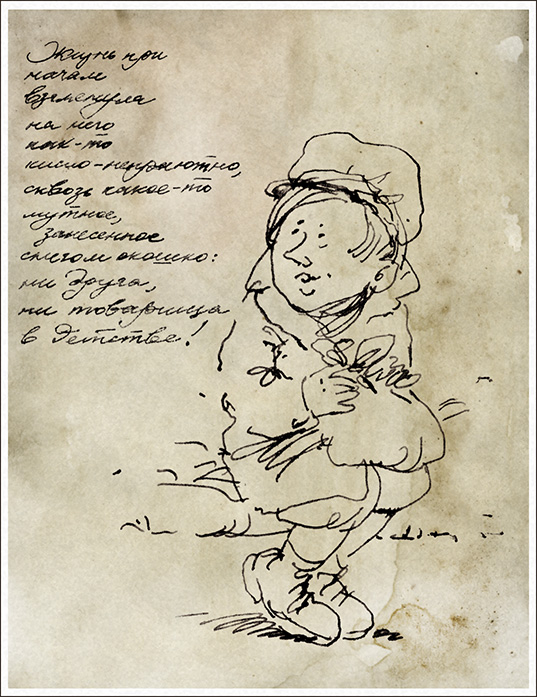 Жизнь при
начале
взглянула
на него
как-то
кисло-неприютно,
сквозь какое-то
мутное,
занесенное
снегом окошко:
ни друга,
ни товарища
в детстве!